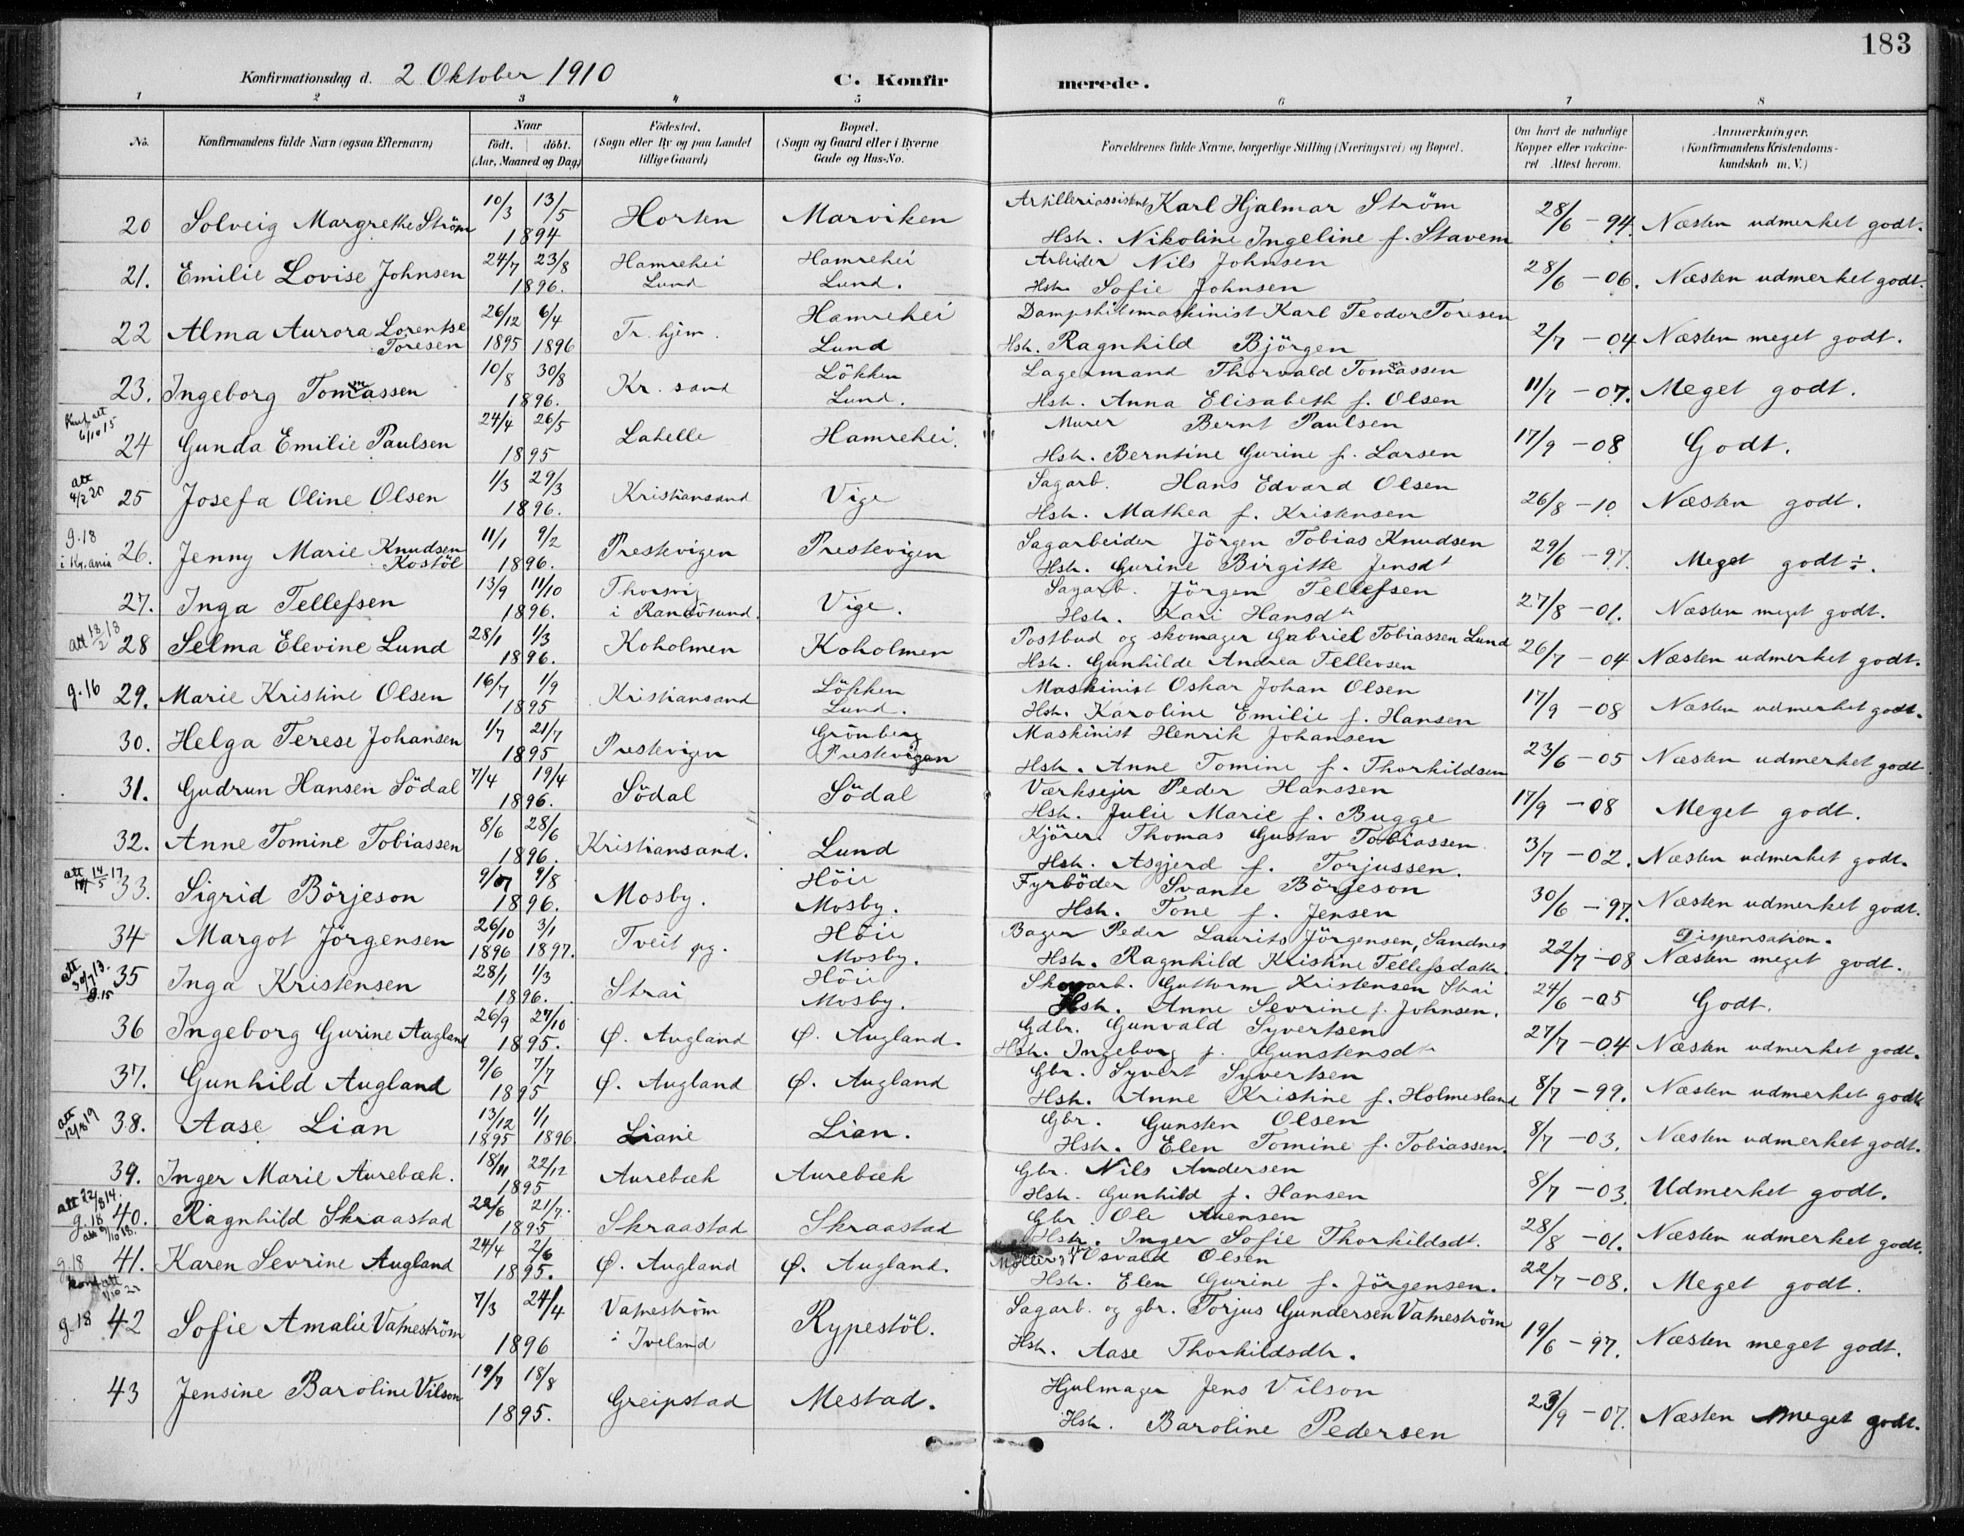 183
Konfirmationsdag d. 2 Oktober 1910 C. Konfirmerede.
1 2 3 4 5 6 7 8
No. Konfirmandens fulde Navn (ogsaa Efternavn) Naar født. døbt. (Aar, Maaned og Dag) Fødested. (Sogn eller By og paa Landet tillige Gaard) Bopæl. (Sogn og Gaard eller i Byerne Gade og Hus-No. Forældrenes fulde Navne, borgerlige Stilling (Næringsvei) og Bopæl. Om havt de naturlige Kopper eller vakcineret Attest herom. Anmærkninger. (Konfirmandens Kristendomskundskab m. V.)
20 Solveig Margrethe Ström 10/3 13/5 1894 Horten Marviken Artilleriassistent Karl Hjalmar Ström
Hstr. Nikoline Ingeline f. Stavem 28/6 - 94. Næsten udmerket godt.
21. Emilie Lovise Johnsen 24/7 23/8 1896. Hamrehei Lund Hamrehei Lund. Arbeider Nils Johnsen
Hstr. Sofie Johnsen 28/6 - 06. Næsten udmerket godt.
22 Alma Aurora Lorentse Toresen 26/12 1895 6/4 1896 Tr.hjem. Hamrehei Lund Dampskibsmaskinist Karl Teodor Toresen
Hstr. Ragnhild Björgen 2/7 - 04 Næsten meget godt.
23. Ingeborg Tommassen 10/8 30/8 1896. Kr. sand Lökken Lund. Lagermand Thorvald Tommassen
Hstr. Anna Elisabeth f. Olsen 11/7 - 07. Meget godt.
att 6/10 15
24 Gunda Emilie Paulsen 24/4 26/5 1895 Lahelle Hamrehei. Murer Bernt Paulsen
Hstr. Berntine Gurine f. Larsen 17/9 - 08 Godt.
att 4/2 20
25 Josefa Oline Olsen 1/3 29/3 1896. Kristiansand Vige Sagarb. Hans Edvard Olsen
Hstr. Mathea f. Kristensen 26/8 - 10 Næsten godt.
g. 18 i Kr.ania
26. Jenny Marie Knudsen Kostöl 11/1 9/2 1896. Prestevigen Prestevigen Sagarbeider Jörgen Tobias Knudsen
Hstr. Gurine Birgitte Jensdt 29/6 - 97. Meget godt ÷.
27. Inga Tellefsen 13/9 11/10 1896. Thorsvig i Randösund. Vige. Sagarb. Jörgen Tellefsen
Hstr. Kari Hansdtr 27/8 - 01. Næsten meget godt.
att 18/2 18
28 Selma Elevine Lund 28/1 1/3 1896. Koholmen Koholmen Postbud og skomager Gabriel Tobiassen Lund
Hstr. Gunhilde Andrea Tellevsen 26/7 - 04 Næsten udmerket godt.
g. 16
29. Marie Kristine Olsen 16/7 1/9 1895 Kristiansand Lökken Lund. Maskinist Oskar Johan Olsen
Hstr. Karoline Emilie f. Hansen 17/9 - 08 Næsten udmerket godt.
30. Helga Terese Johansen 1/7 21/7 1895 Prestevigen Grönberg Prestevigen Maskinist Henrik Johansen
Hstr. Anne Tomine f. Thorkildsen 23/6 - 05 Næsten udmerket godt
31. Gudrun Hansen Södal 7/4 19/4 1896. Södal Södal Værkseier Peder Hanssen
Hstr. Julie Marie f. Bugge 17/9 - 08 Meget godt.
32. Anne Tomine Tobiassen 8/6 28/6 1896. Kristiansand. Lund Kjörer. Thomas Gustav Tobiassen
Hstr. Asgjerd f. Torjussen. 3/7 - 02. Næsten udmerket godt.
att 14/5 17
33. Sigrid Börjeson 9/7 9/8 1896. Mosby. Höie Mosby. Fyrböder Svante Börjeson
Hstr. Tone f. Jensen 30/6 - 97. Næsten udmerket godt.
34 Margot Jörgensen 26/10 1896 3/1 1897. Tveit pg. Höie Mosby. Bager Peder Laurits Jörgensen, Sandnes
Hstr. Ragnhild Kristine Tellefsdatr. 22/7 - 08 Dispensation. Næsten meget godt.
att 30/7 13. g. 15
35 Inga Kristensen 28/1 1/3 1896. Strai Höie Mosby. Skogarb. Guttorm Kristensen Strai
Hstr. Anne Sevrine f. Johnsen. 24/6 - 05 Godt.
36 Ingeborg Gurine Augland 26/9 27/10 1895. Ø. Augland Ø. Augland. Gdbr. Gunvald Syvertsen
Hstr. Ingeborg f. Gunstensdtr 27/7 - 04 Næsten udmerket godt.
37. Gunhild Augland 9/6 7/7 1895 Ø. Augland Ø. Augland Gbr. Syvert Syvertsen
Hstr. Anne Kristine f. Holmesland 8/7 - 99. Næsten udmerket godt
att 12/8 19
38. Aase Lian 13/12 1895 1/1 1896. Liane Lian. Gbr. Gunsten Olsen
Hstr. Elen Tomine f. Tobiassen. 8/7 - 03. Næsten udmerket godt.
39. Inger Marie Aurebæk. 18/11 22/12 1895 Aurebæk Aurebæk Gbr. Nils Andersen
Hstr. Gunhild f. Hansen 8/7 - 03. Udmerket godt.
att 22/8 14. g. 18 att 9/10 18.
40. Ragnhild Skraastad 22/6 21/7. 1895 Skraastad Skraastad Gbr. Ole Auensen
Hstr. Inger Sofie Thorkildsdt. 28/8 - 01. Næsten udmerket godt.
g. 18
41. Karen Sevrine Augland 24/4 2/6 1895. Ø. Augland Ø. Augland. Osvald Olsen
Hstr. Elen Gurine f. Jörgensen. 22/7 - 08. Meget godt.
g. 18
42 Sofie Amalie Vatneström 7/3 24/4 1896 Vatneström i Iveland Rypestöl. Sagarb. og gbr. Torjus Gundersen Vatneström
Hstr. Aase Thorkildsdtr. 19/6 - 97. Næsten meget godt.
43 Jensine Baroline Vilson 19/7 18/8 1895. Greipstad Mestad. Hjulmager Jens Vilson
Hstr. Baroline Pedersen 23/9 - 07. Næsten meget godt.